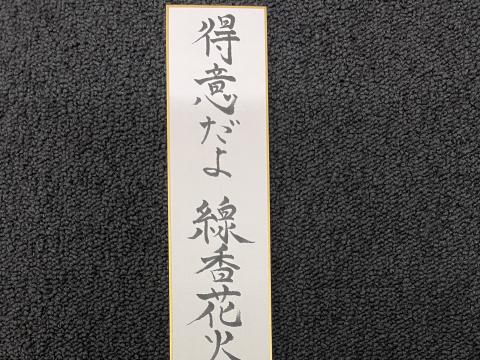 得意だよ 線香花火